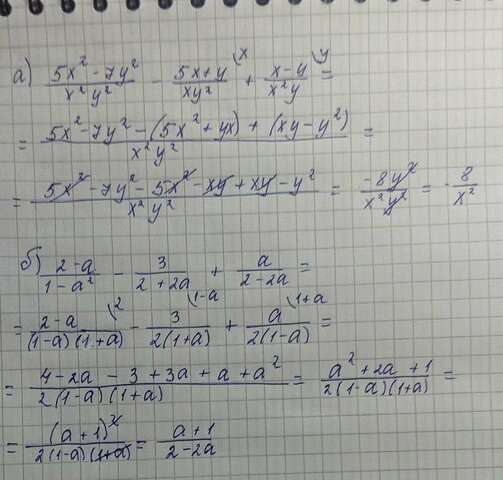 а) (5x² - 7y²)/(x²y²) - (5x + y)/(xy²) \x + (x - y)/(x²y) \y =
= (5x² - 7y² - (5x² + yx) + (xy - y²))/(x²y²) =
= (5x² - 7y² - 5x² - xy + xy - y²)/(x²y²) = (-8y²)/(x²y²) = - 8/x²
б) (2 - a)/(1 - a²) - 3/(2 + 2a) + a/(2 - 2a) =
= (2 - a)/((1 - a)(1 + a)) \2 - 3/(2(1 + a)) \1-a + a/(2(1 - a)) \1+a =
= (4 - 2a - 3 + 3a + a + a²)/(2(1 - a)(1 + a)) = (a² + 2a + 1)/(2(1 - a)(1 + a)) =
= (a + 1)²/(2(1 - a)(1 + a)) = (a + 1)/(2 - 2a)